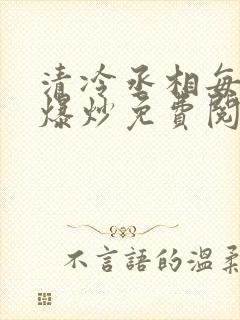 清冷丞相每
爆炒免費閱
不言語的溫柔